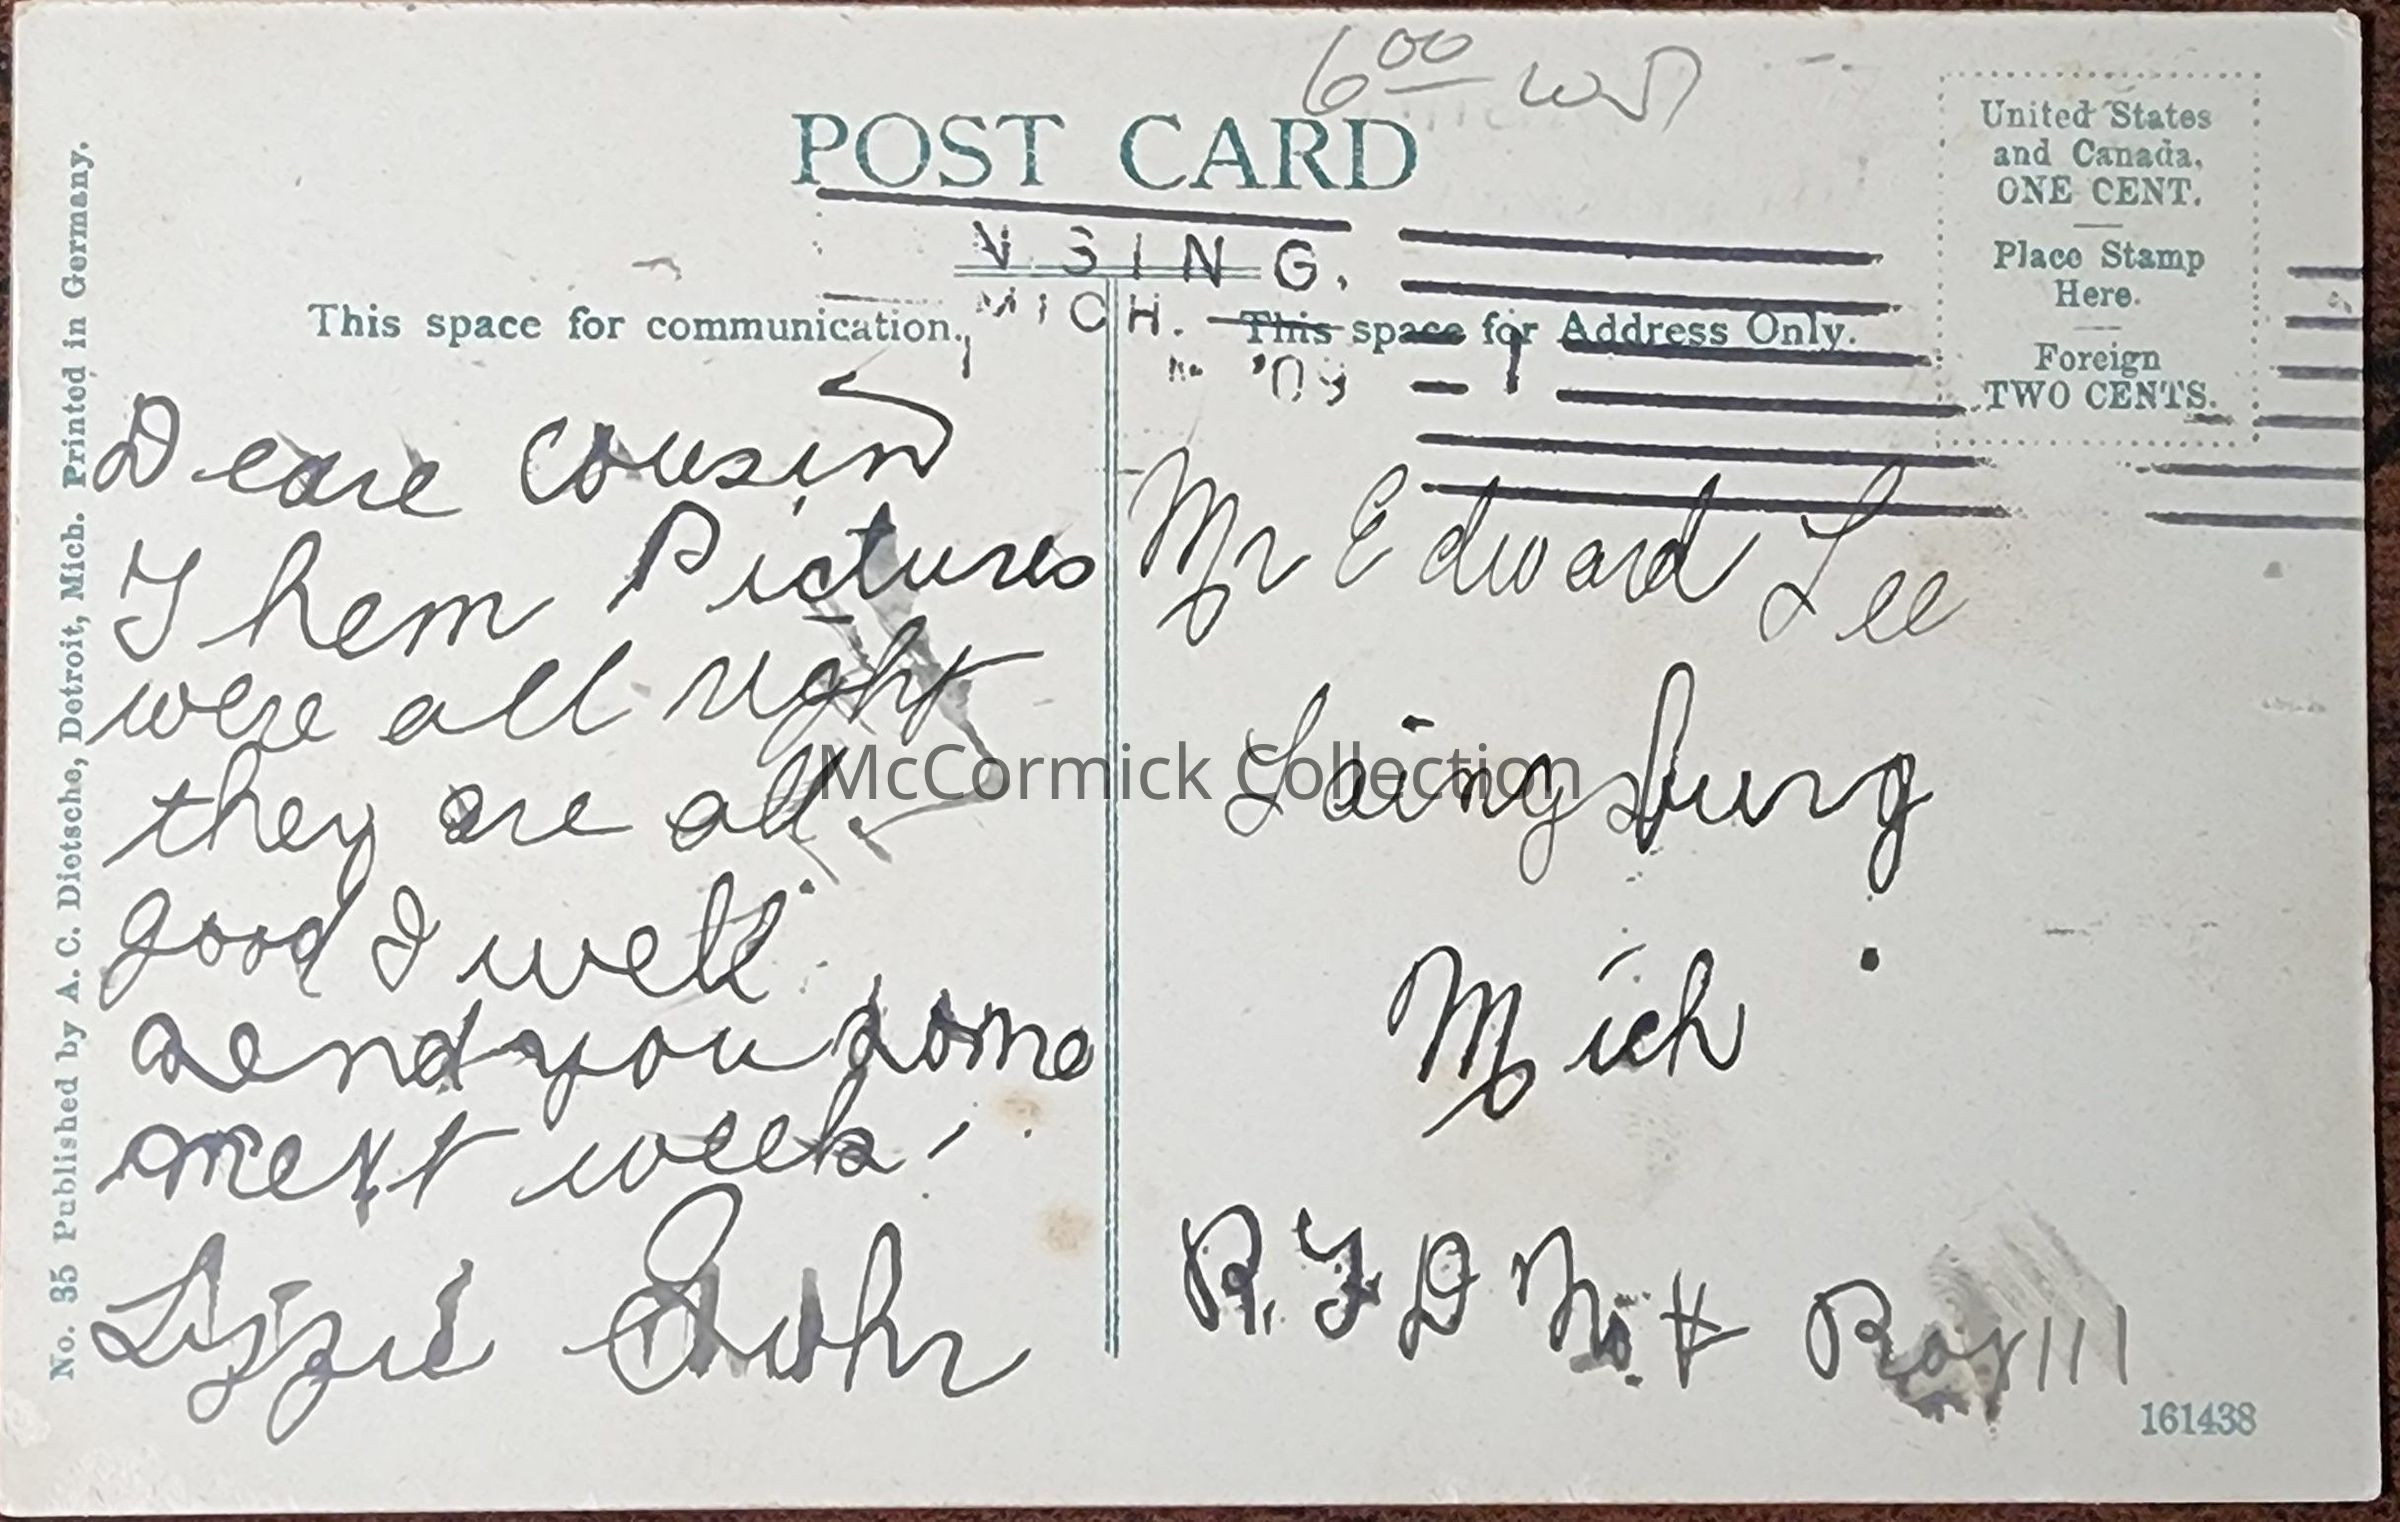 6 00
POST CARD
United States
and Canada,
ONE CENT.
Place Stamp
Here.
Foreign
TWO CENTS.
NSING,
MICH.
This space for communication.
This space for Address Only.
Deare Cousin
Them Pictures
were all right
they are all
good I well
send you some
next week
Lizzie
Mr Edward Lee
Laingsburg
Mich
R. F D No 4 Box 111
No. 35 Published by A. C. Dietsche, Detroit, Mich. Printed in Germany.
161438
McCormick Collection